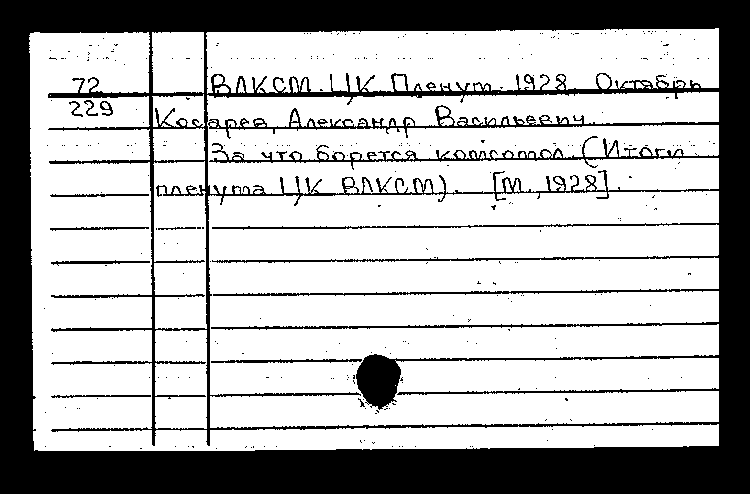 72 ВЛКСМ. ЦК. Пленум. 1928. Октябрь
229 Косарев, Александр Васильевич.
За что борется комсомол. (Итоги
пленума ЦК ВЛКСМ). [М., 1928].